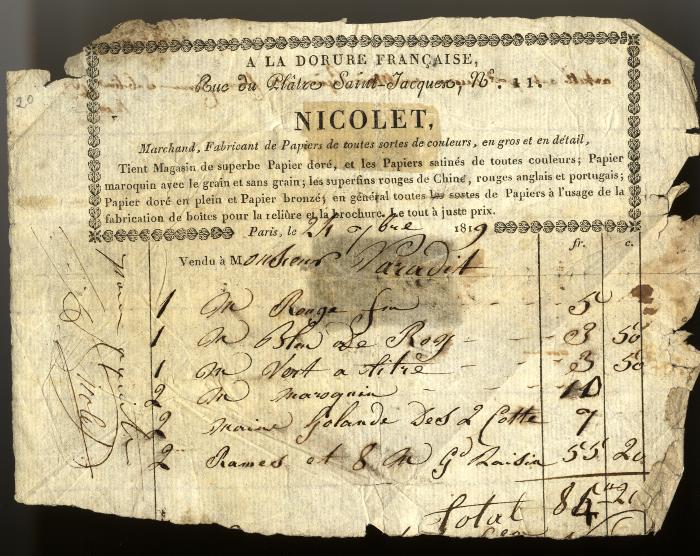 20
A LA DORURE FRANÇAISE,
Rue du Plâtre Saint-Jacques, N°. 11.
NICOLET,
Marchand, Fabricant de Papiers de toutes sortes de couleurs, en gros et en détail,
Tient Magasin de superbe Papier doré, et les Papiers satinés de toutes couleurs; Papier
maroquin avec le grain et sans grain; les superfins rouges de Chine, rouges anglais et portugais;
Papier doré en plein et Papier bronzé; en général toutes les sortes de Papiers à l'usage de la
fabrication de boîtes pour la reliûre et la brochure. Le tout à juste prix.
Paris, le 24 7bre 1819
fr. c.
Vendu à Monsieur Paradit
1 M Rouge fin 5
1 M Bleu de Roy 3 50
1 M Vert 3 50
2 M maroquin 10
2 maine holande des 2 Cotte 7
2 Rames et 8 M Gd Raisin 55 20
total 84 20